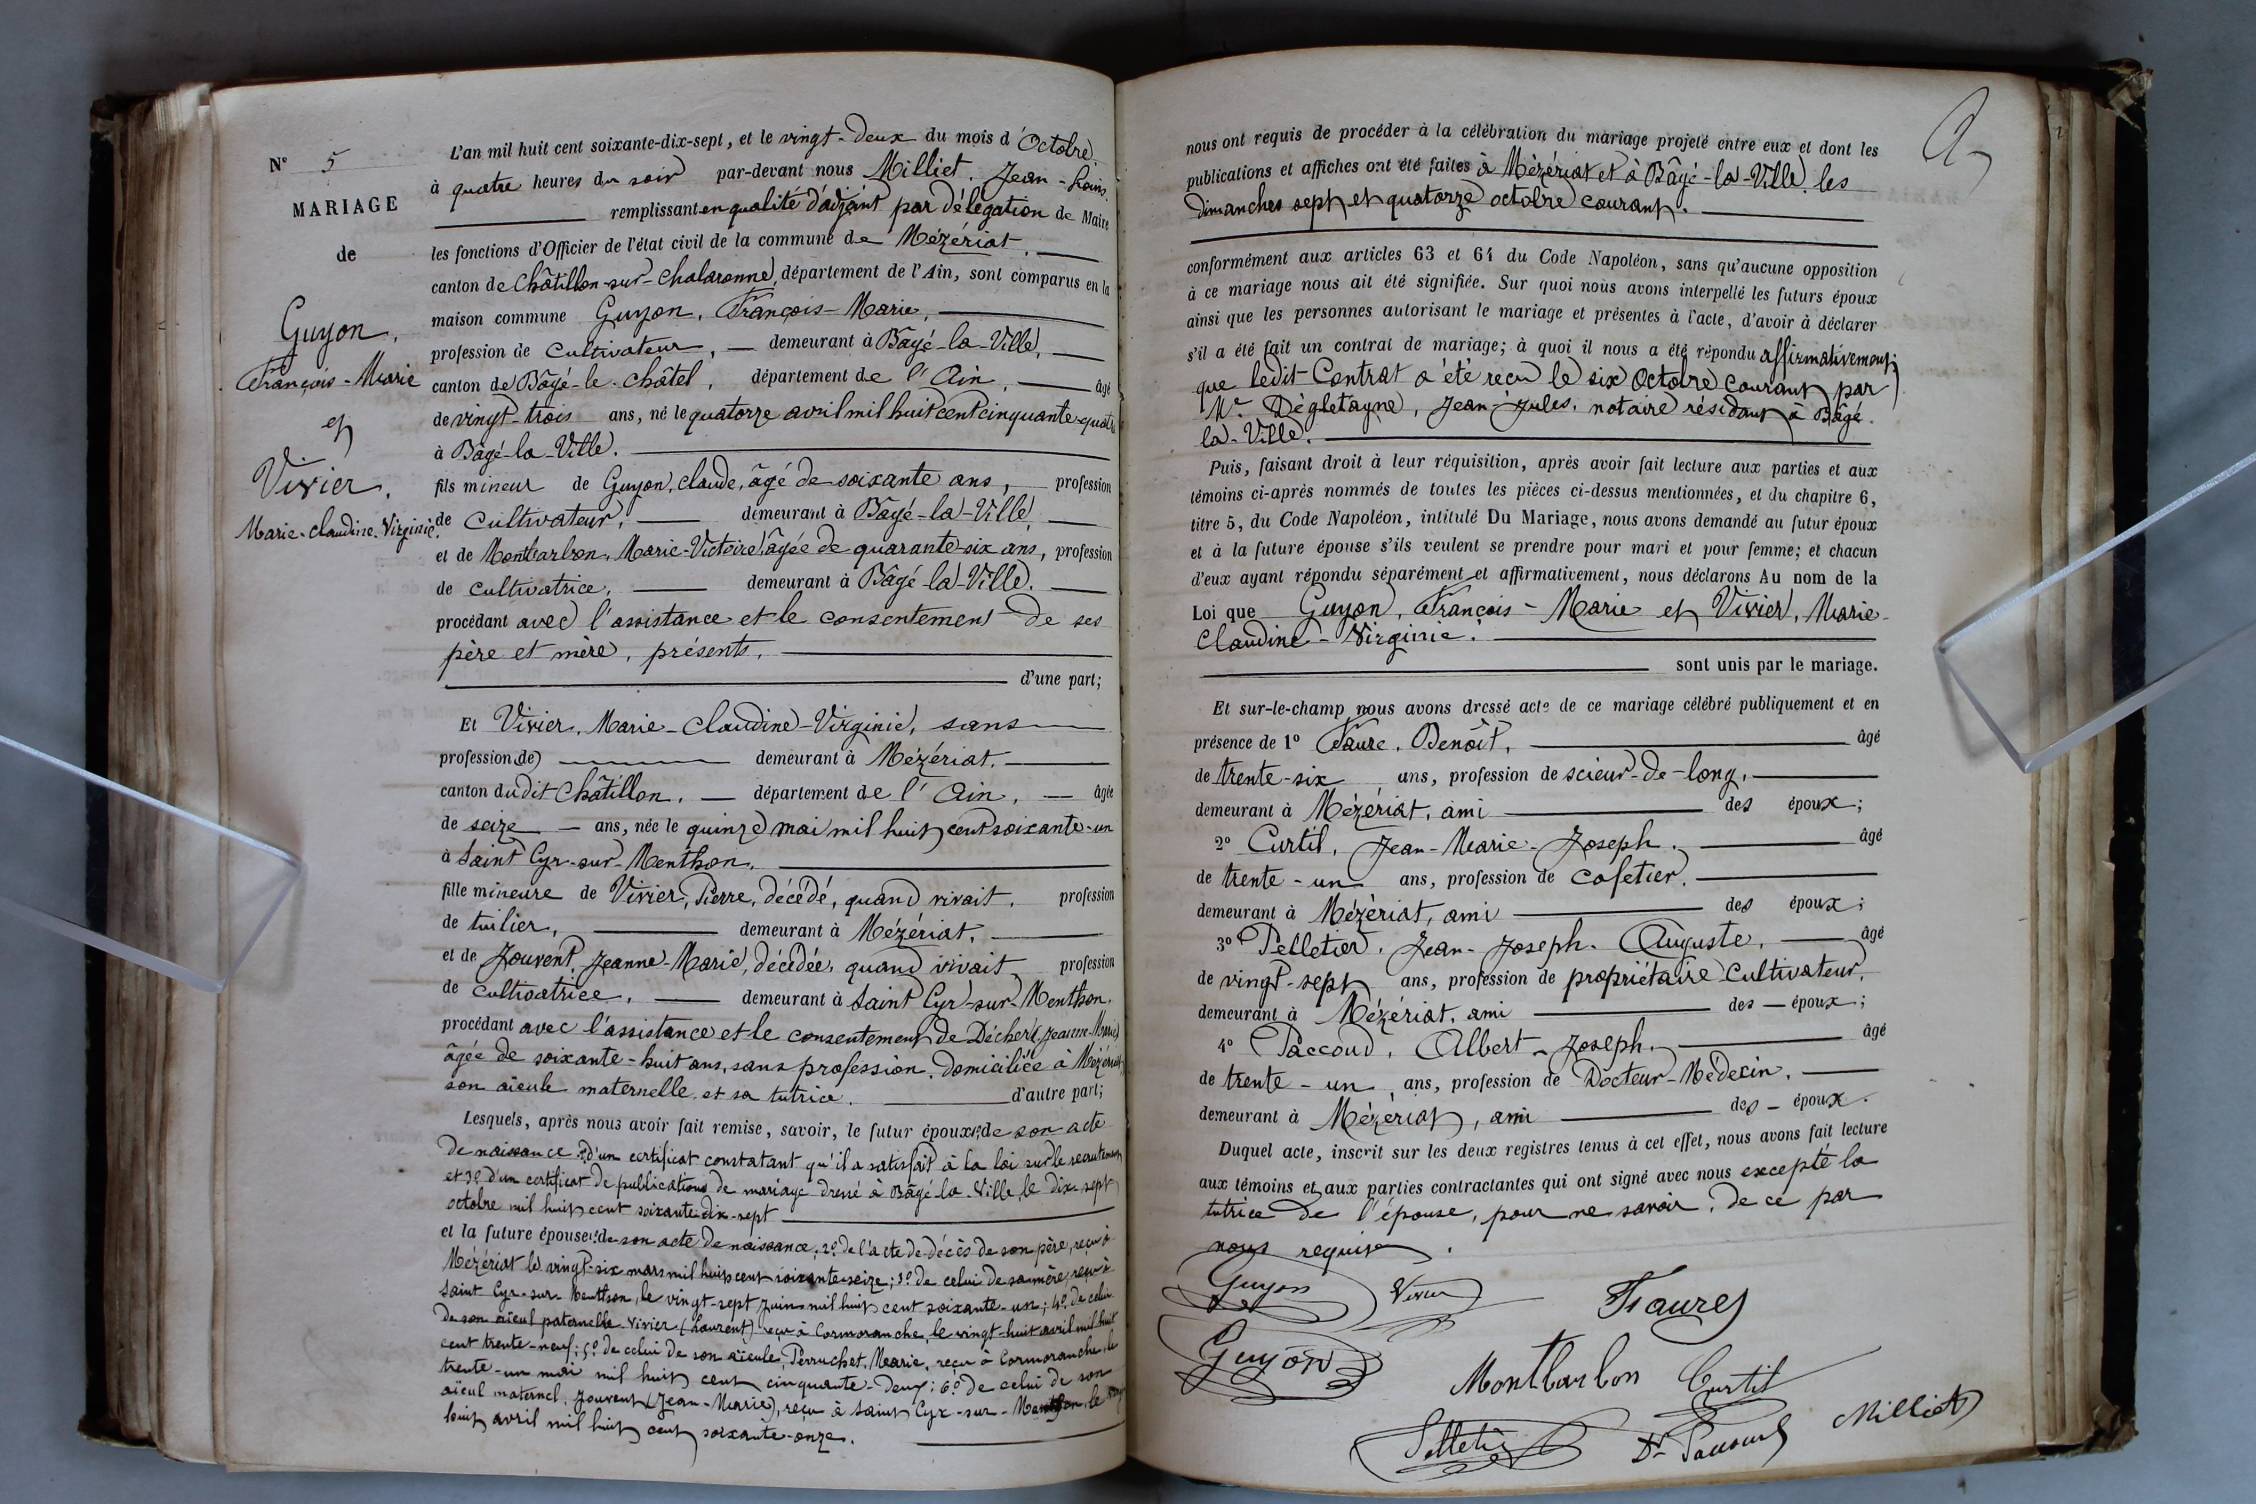 N° 5
MARIAGE
de
Guyon,
François-Marie
et
Vivier,
Marie-Claudine-Virginie.
L'an mil huit cent soixante-dix-sept, et le vingt-deux du mois d'Octobre,
à quatre heures du soir par-devant nous Milliet, Jean-Louis,
remplissant en qualité d'adjoint par délégation de Maire
les fonctions d'Officier de l'état civil de la commune de Mézériat,
canton de Châtillon-sur-Chalaronne, département de l'Ain, sont comparus en la
maison commune Guyon, François-Marie,
profession de cultivateur, demeurant à Bâgé-la-Ville,
canton de Bâgé-le-Châtel, département de l'Ain, âgé
de vingt-trois ans, né le quatorze avril mil huit cent cinquante-quatre
à Bâgé-la-Ville.
fils mineur de Guyon, Claude, âgé de soixante ans, profession
de cultivateur, demeurant à Bâgé-la-Ville,
et de Montbarbon, Marie-Victoire, âgée de quarante-six ans, profession
de cultivatrice, demeurant à Bâgé-la-Ville.
procédant avec l'assistance et le consentement de ses
père et mère, présents,
d'une part;
Et Vivier, Marie-Claudine-Virginie, sans
profession (de) demeurant à Mézériat,
canton dudit Châtillon, département de l'Ain, âgée
de seize ans, née le quinze mai mil huit cent soixante-un
à Saint Cyr-sur-Menthon,
fille mineure de Vivier, Pierre, décédé, quand vivait, profession
de tuilier, demeurant à Mézériat,
et de Jouvent, Jeanne-Marie, décédée, quand vivait, profession
de cultivatrice, demeurant à Saint Cyr-sur-Menthon,
procédant avec l'assistance et le consentement de Décher, Jeanne-Marie,
âgée de soixante-huit ans, sans profession, domiciliée à Mézériat,
son aïeule maternelle et sa tutrice, d'autre part;
Lesquels, après nous avoir fait remise, savoir, le futur époux 1° de son acte
de naissance; 2° d'un certificat constatant qu'il a satisfait à la loi sur le recrutement
et 3° d'un certificat de publications de mariage dressé à Bâgé-la-Ville, le dix-sept
octobre mil huit cent soixante-dix-sept
et la future épouse 1° de son acte de naissance; 2° de l'acte de décès de son père, reçu à
Mézériat le vingt-six mars mil huit cent soixante-seize; 3° de celui de sa mère, reçu à
Saint Cyr-sur-Menthon, le vingt-sept juin mil huit cent soixante-un; 4° de celui
de son aïeul paternelle Vivier (Laurent) reçu à Cormoranche, le vingt-huit avril mil huit
cent trente-neuf; 5° de celui de son aïeule, Perruchet, Marie, reçu à Cormoranche, le
trente-un mai mil huit cent cinquante-deux; 6° de celui de son
aïeul maternel, Jouvent (Jean-Marie), reçu à Saint Cyr-sur-Menthon, le vingt
huit avril mil huit cent soixante-onze.
nous ont requis de procéder à la célébration du mariage projeté entre eux et dont les
publications et affiches ont été faites à Mézériat et à Bâgé-la-Ville, les
dimanches sept et quatorze octobre courant.
conformément aux articles 63 et 64 du Code Napoléon, sans qu'aucune opposition
à ce mariage nous ait été signifiée. Sur quoi nous avons interpellé les futurs époux
ainsi que les personnes autorisant le mariage et présentes à l'acte, d'avoir à déclarer
s'il a été fait un contrat de mariage; à quoi il nous a été répondu affirmativement;
que ledit Contrat a été reçu le six Octobre courant par
Me Dègletagne, Jean-Jules, notaire résidant à Bâgé-
la-Ville.
Puis, faisant droit à leur réquisition, après avoir fait lecture aux parties et aux
témoins ci-après nommés de toutes les pièces ci-dessus mentionnées, et du chapitre 6,
titre 5, du Code Napoléon, intitulé Du Mariage, nous avons demandé au futur époux
et à la future épouse s'ils veulent se prendre pour mari et pour femme; et chacun
d'eux ayant répondu séparément et affirmativement, nous déclarons Au nom de la
Loi que Guyon, François-Marie et Vivier, Marie-
Claudine-Virginie,
sont unis par le mariage.
Et sur-le-champ nous avons dressé acte de ce mariage célébré publiquement et en
présence de 1° Faure, Benoît, âgé
de trente-six ans, profession de scieur-de-long,
demeurant à Mézériat, ami des époux;
2° Curtil, Jean-Marie-Joseph, âgé
de trente-un ans, profession de cafetier,
demeurant à Mézériat, ami des époux;
3° Pelletier, Jean-Joseph-Auguste, âgé
de vingt-sept ans, profession de propriétaire cultivateur,
demeurant à Mézériat, ami des époux;
4° Paccoud, Albert-Joseph, âgé
de trente-un ans, profession de Docteur-Médecin,
demeurant à Mézériat, ami des époux.
Duquel acte, inscrit sur les deux registres tenus à cet effet, nous avons fait lecture
aux témoins et aux parties contractantes qui ont signé avec nous excepté la
tutrice de l'épouse, pour ne savoir, de ce par
nous requise.
Guyon Vivier Faure
Guyon Montbarbon Curtil
Pelletier Dr Paccoud Milliet